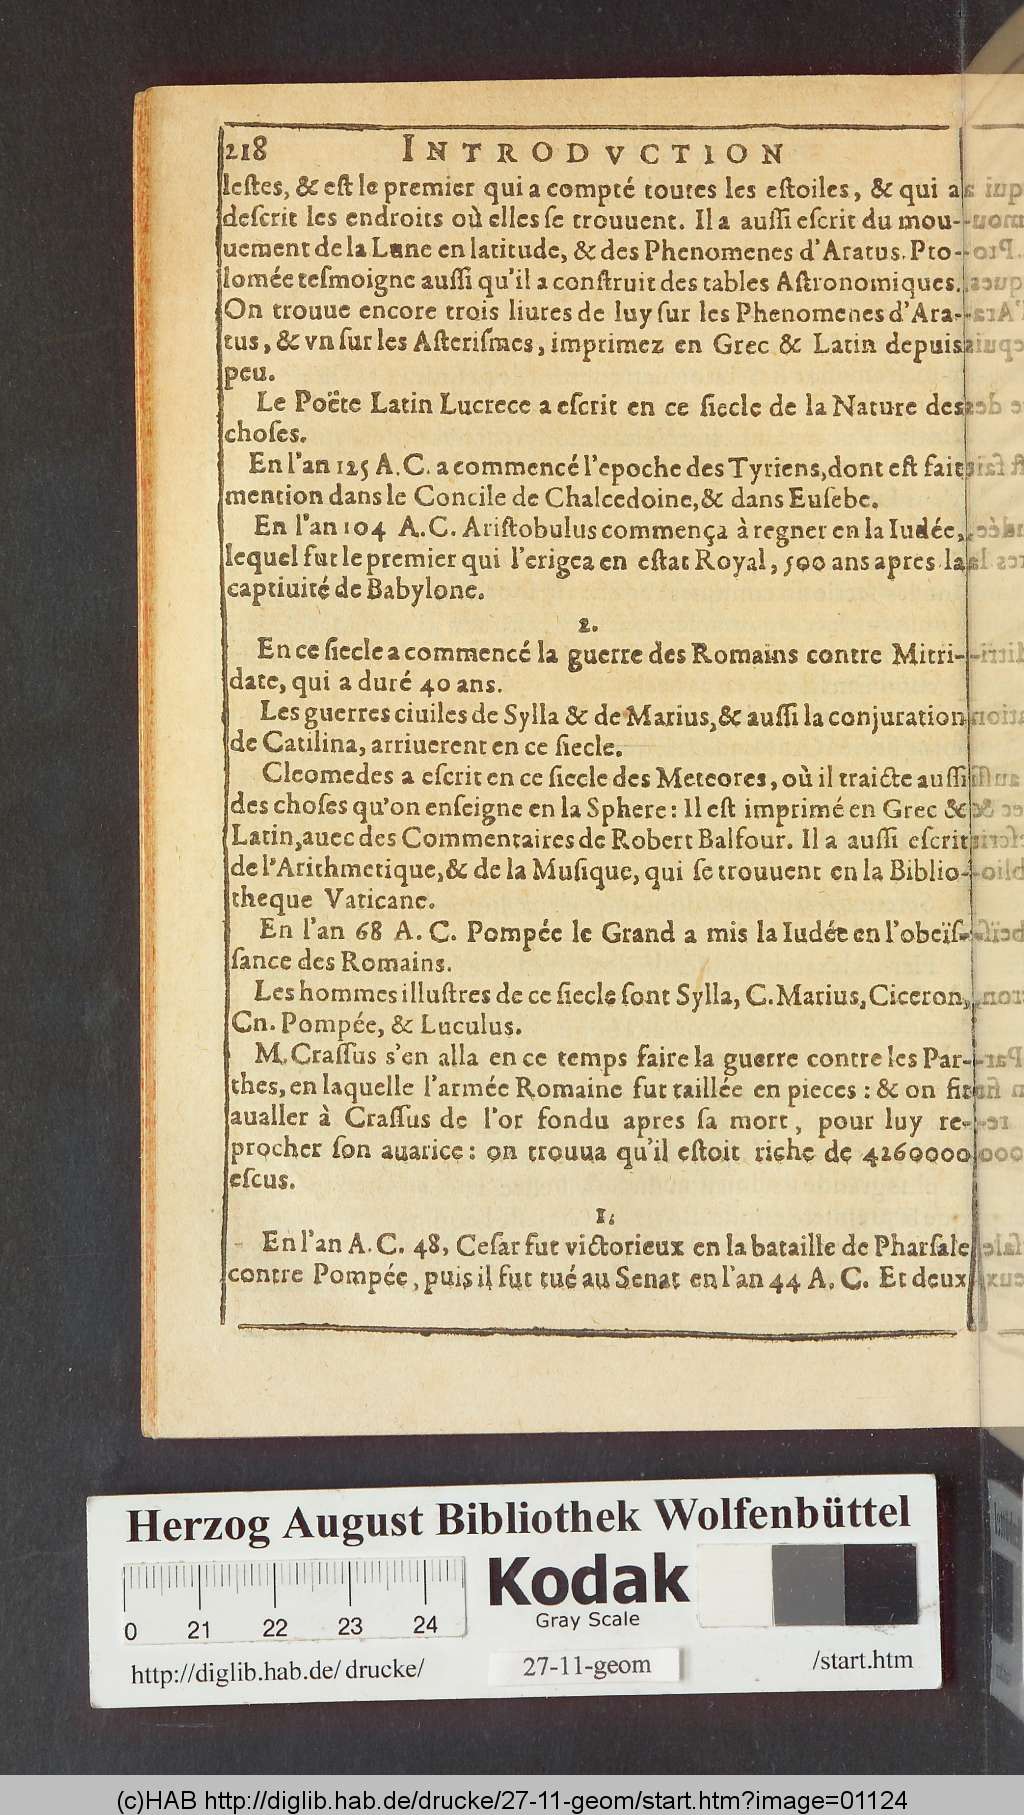 218 INTRODVCTION
lestes, & est le premier qui a compté toutes les estoiles, & qui a
descrit les endroits où elles se trouuent. Il a aussi escrit du mou-
uement de la Lune en latitude, & des Phenomenes d'Aratus. Pto-
lomée tesmoigne aussi qu'il a construit des tables Astronomiques.
On trouue encore trois liures de luy sur les Phenomenes d'Ara-
tus, & vn sur les Asterismes, imprimez en Grec & Latin depuis
peu.
Le Poëte Latin Lucrece a escrit en ce siecle de la Nature des
choses.
En l'an 125 A. C. a commencé l'epoche des Tyriens, dont est fait
mention dans le Concile de Chalcedoine, & dans Eusebe.
En l'an 104 A. C. Aristobulus commença à regner en la Iudée,
lequel fut le premier qui l'erigea en estat Royal, 500 ans apres la
captiuité de Babylone.
2.
En ce siecle a commencé la guerre des Romains contre Mitri-
date, qui a duré 40 ans.
Les guerres ciuiles de Sylla & de Marius, & aussi la conjuration
de Catilina, arriuerent en ce siecle.
Cleomedes a escrit en ce siecle des Meteores, où il traicte aussi
des choses qu'on enseigne en la Sphere: Il est imprimé en Grec &
Latin, auec des Commentaires de Robert Balfour. Il a aussi escrit
de l'Arithmetique, & de la Musique, qui se trouuent en la Biblio-
theque Vaticane.
En l'an 68 A. C. Pompée le Grand a mis la Iudée en l'obeïs-
sance des Romains.
Les hommes illustres de ce siecle sont Sylla, C. Marius, Ciceron,
Cn. Pompée, & Luculus.
M. Crassus s'en alla en ce temps faire la guerre contre les Par-
thes, en laquelle l'armée Romaine fut taillée en pieces : & on fit
aualler à Crassus de l'or fondu apres sa mort, pour luy re-
procher son auarice: on trouua qu'il estoit riche de 4260000
escus.
1.
En l'an A. C. 48, Cesar fut victorieux en la bataille de Pharsale
contre Pompée, puis il fut tué au Senat en l'an 44 A. C. Et deux
Herzog August Bibliothek Wolfenbüttel
Kodak
Gray Scale
0 21 22 23 24
http://diglib.hab.de/drucke/ 27-11-geom /start.htm
(c)HAB http://diglib.hab.de/drucke/27-11-geom/start.htm?image=01124